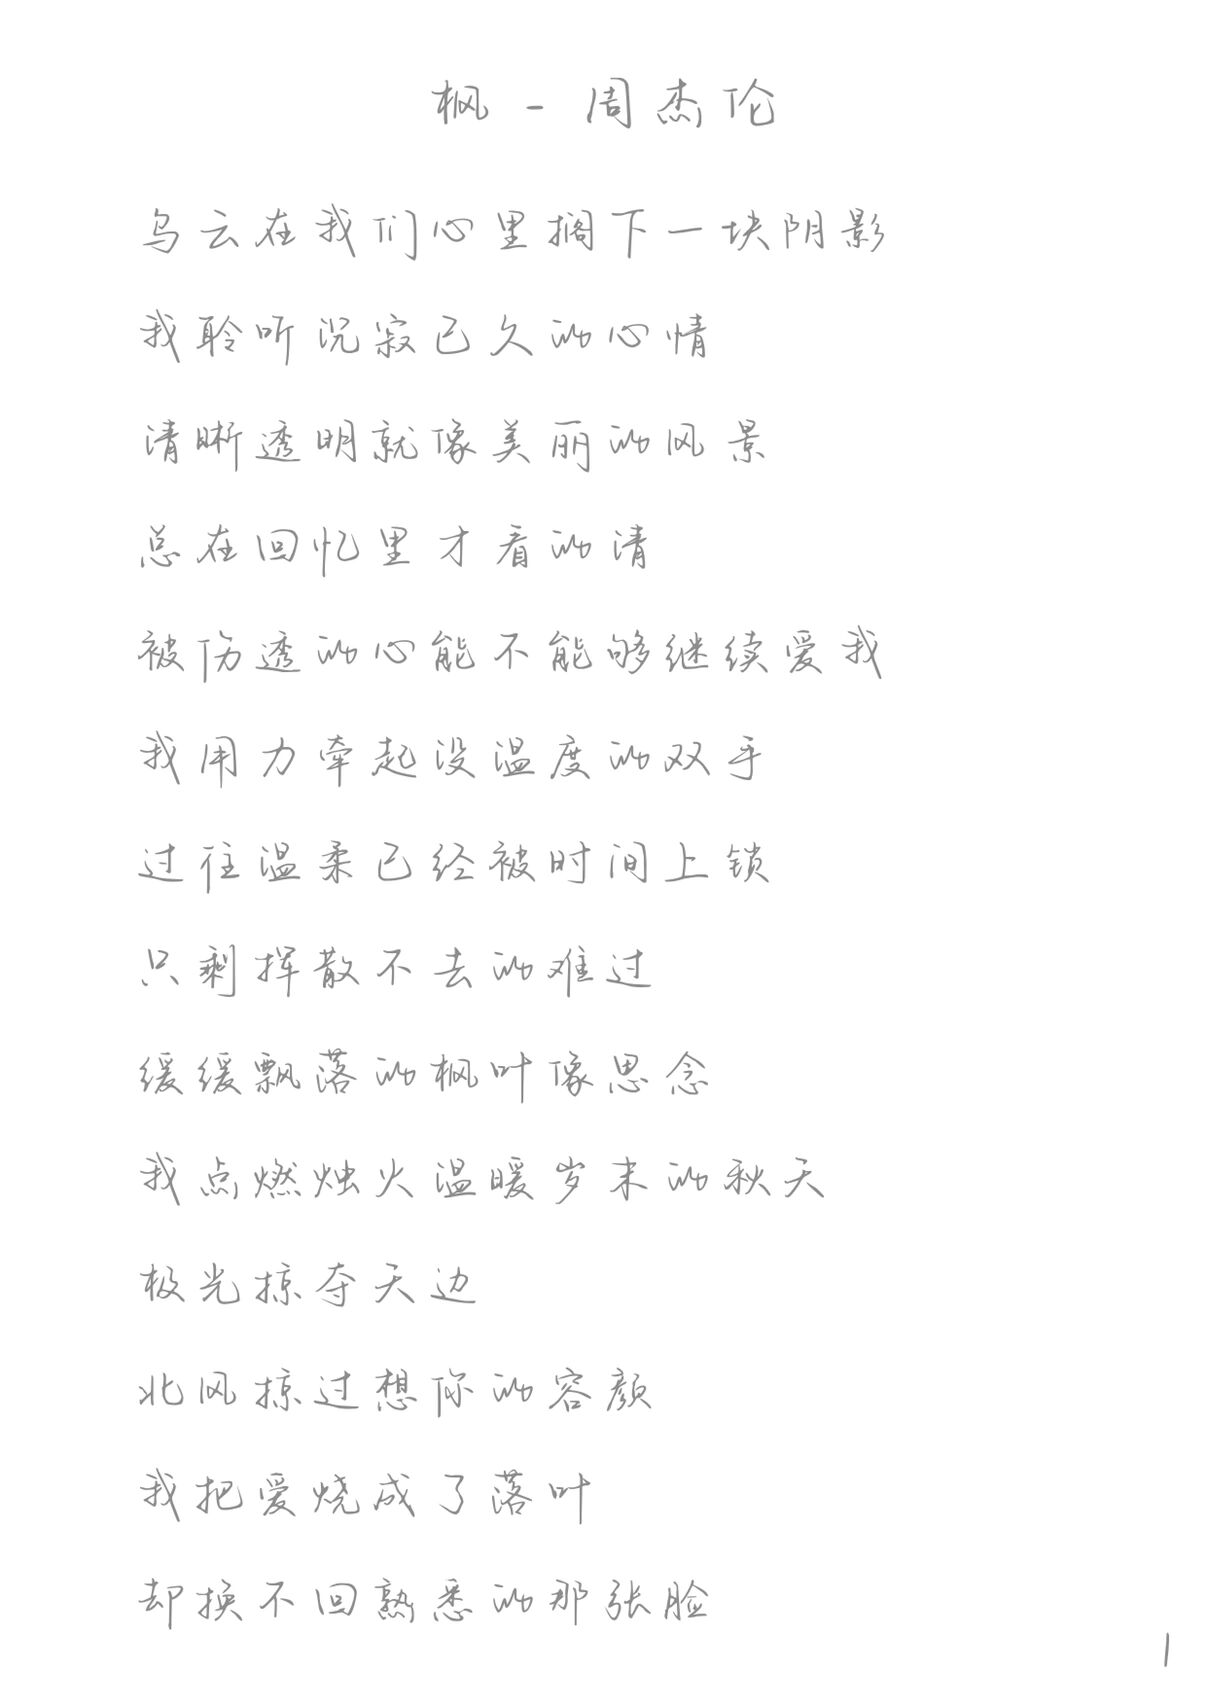 枫 - 周杰伦
乌云在我们心里搁下一块阴影
我聆听沉寂已久的心情
清晰透明就像美丽的风景
总在回忆里才看的清
被伤透的心能不能够继续爱我
我用力牵起没温度的双手
过往温柔已经被时间上锁
只剩挥散不去的难过
缓缓飘落的枫叶像思念
我点燃烛火温暖岁末的秋天
极光掠夺天边
北风掠过想你的容颜
我把爱烧成了落叶
却换不回熟悉的那张脸
1